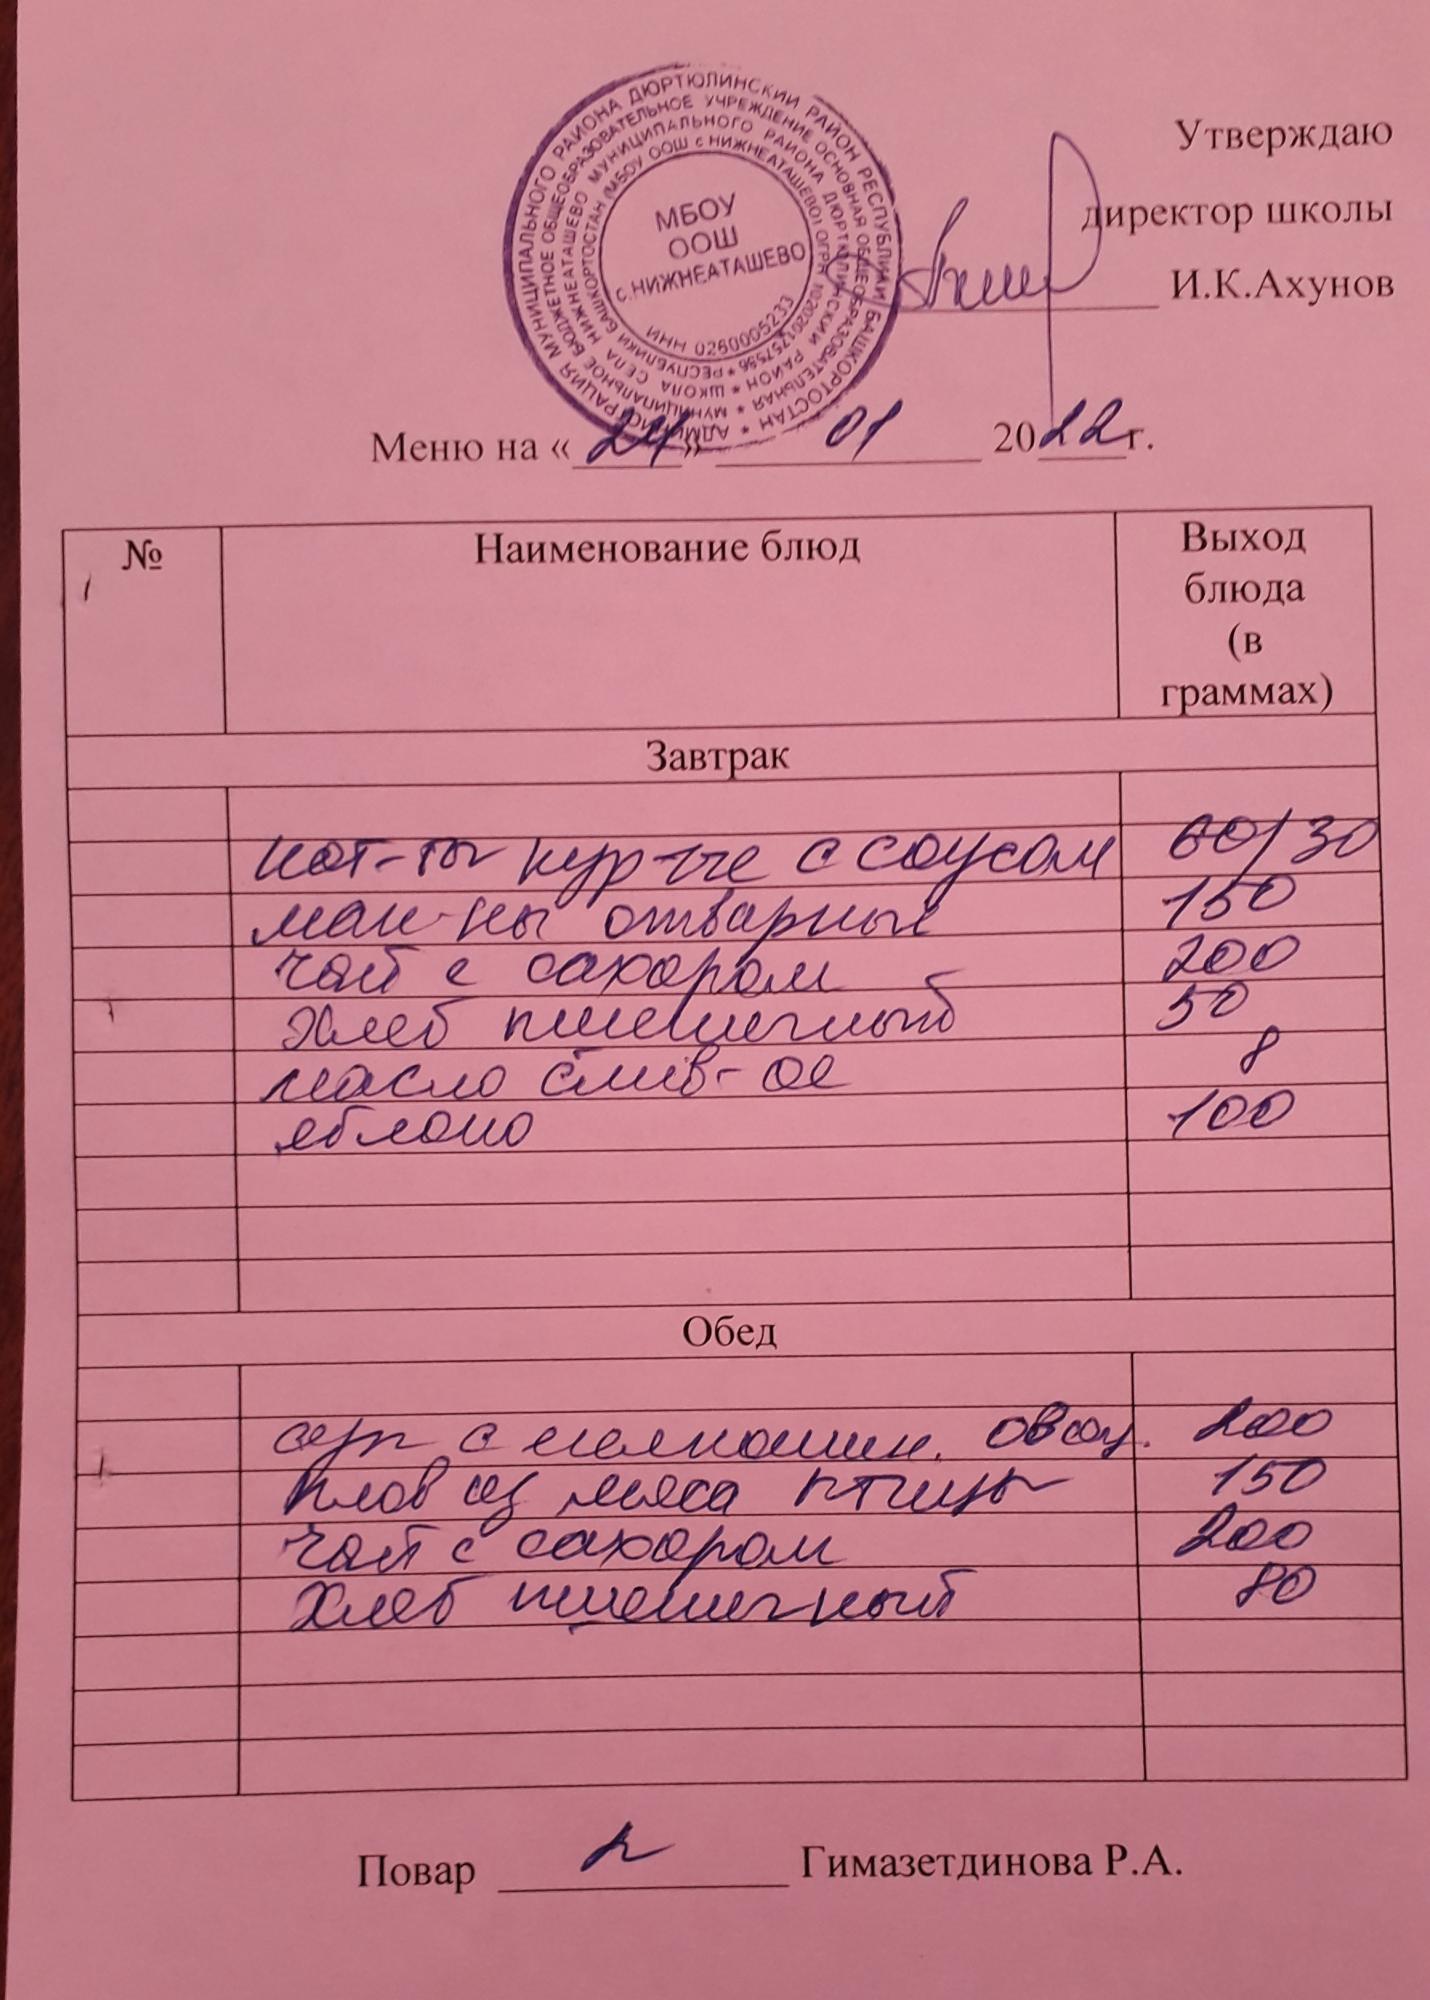 Утверждаю
директор школы
И.К.Ахунов
АДМИНИСТРАЦИЯ МУНИЦИПАЛЬНОГО РАЙОНА ДЮРТЮЛИНСКИЙ РАЙОН РЕСПУБЛИКИ БАШКОРТОСТАН *
МУНИЦИПАЛЬНОЕ БЮДЖЕТНОЕ ОБЩЕОБРАЗОВАТЕЛЬНОЕ УЧРЕЖДЕНИЕ ОСНОВНАЯ ОБЩЕОБРАЗОВАТЕЛЬНАЯ *
ШКОЛА СЕЛА НИЖНЕАТАШЕВО МУНИЦИПАЛЬНОГО РАЙОНА ДЮРТЮЛИНСКИЙ РАЙОН *
РЕСПУБЛИКИ БАШКОРТОСТАН (МБОУ ООШ с НИЖНЕАТАШЕВО) ОГРН 1020201757596 *
МБОУ
ООШ
с.НИЖНЕАТАШЕВО
ИНН 0260005233
Меню на «24» 01 2022г.
№ Наименование блюд Выход
блюда
(в
граммах)
Завтрак
кот-ты кур-ые с соусом 60/30
мак-ны отварные 150
чай с сахаром 200
Хлеб пшеничный 50
масло слив-ое 8
яблоко 100
Обед
суп с мелкошин. овощ. 200
Плов из мяса птицы 150
чай с сахаром 200
Хлеб пшеничный 80
Повар Гимазетдинова Р.А.